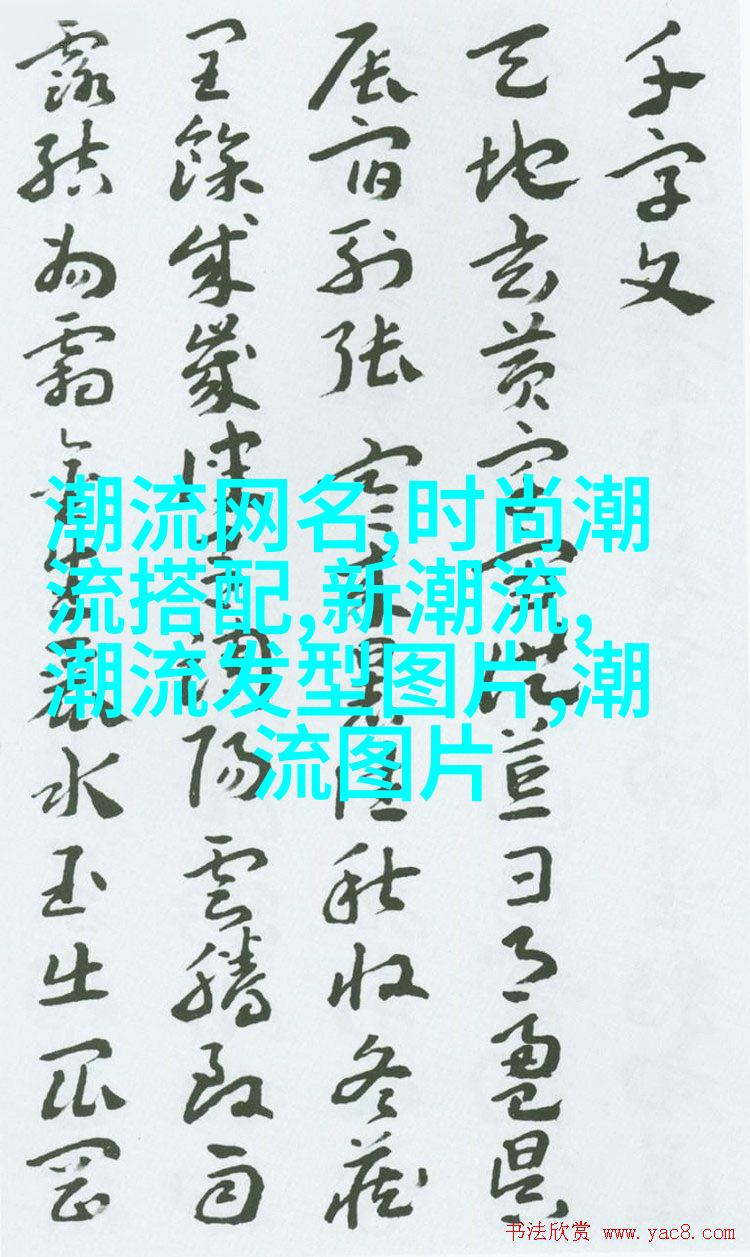 千字文
天地玄黄宇宙洪荒日月盈昃
辰宿列張寒来暑往秋收冬藏
閏餘成歲律吕調陽雲騰致雨
露結為霜金生麗水玉出崑岡
潮流网名,时尚潮
流搭配,新潮流,
潮流发型图片,潮
流图片
书法欣赏 www.yac8.com